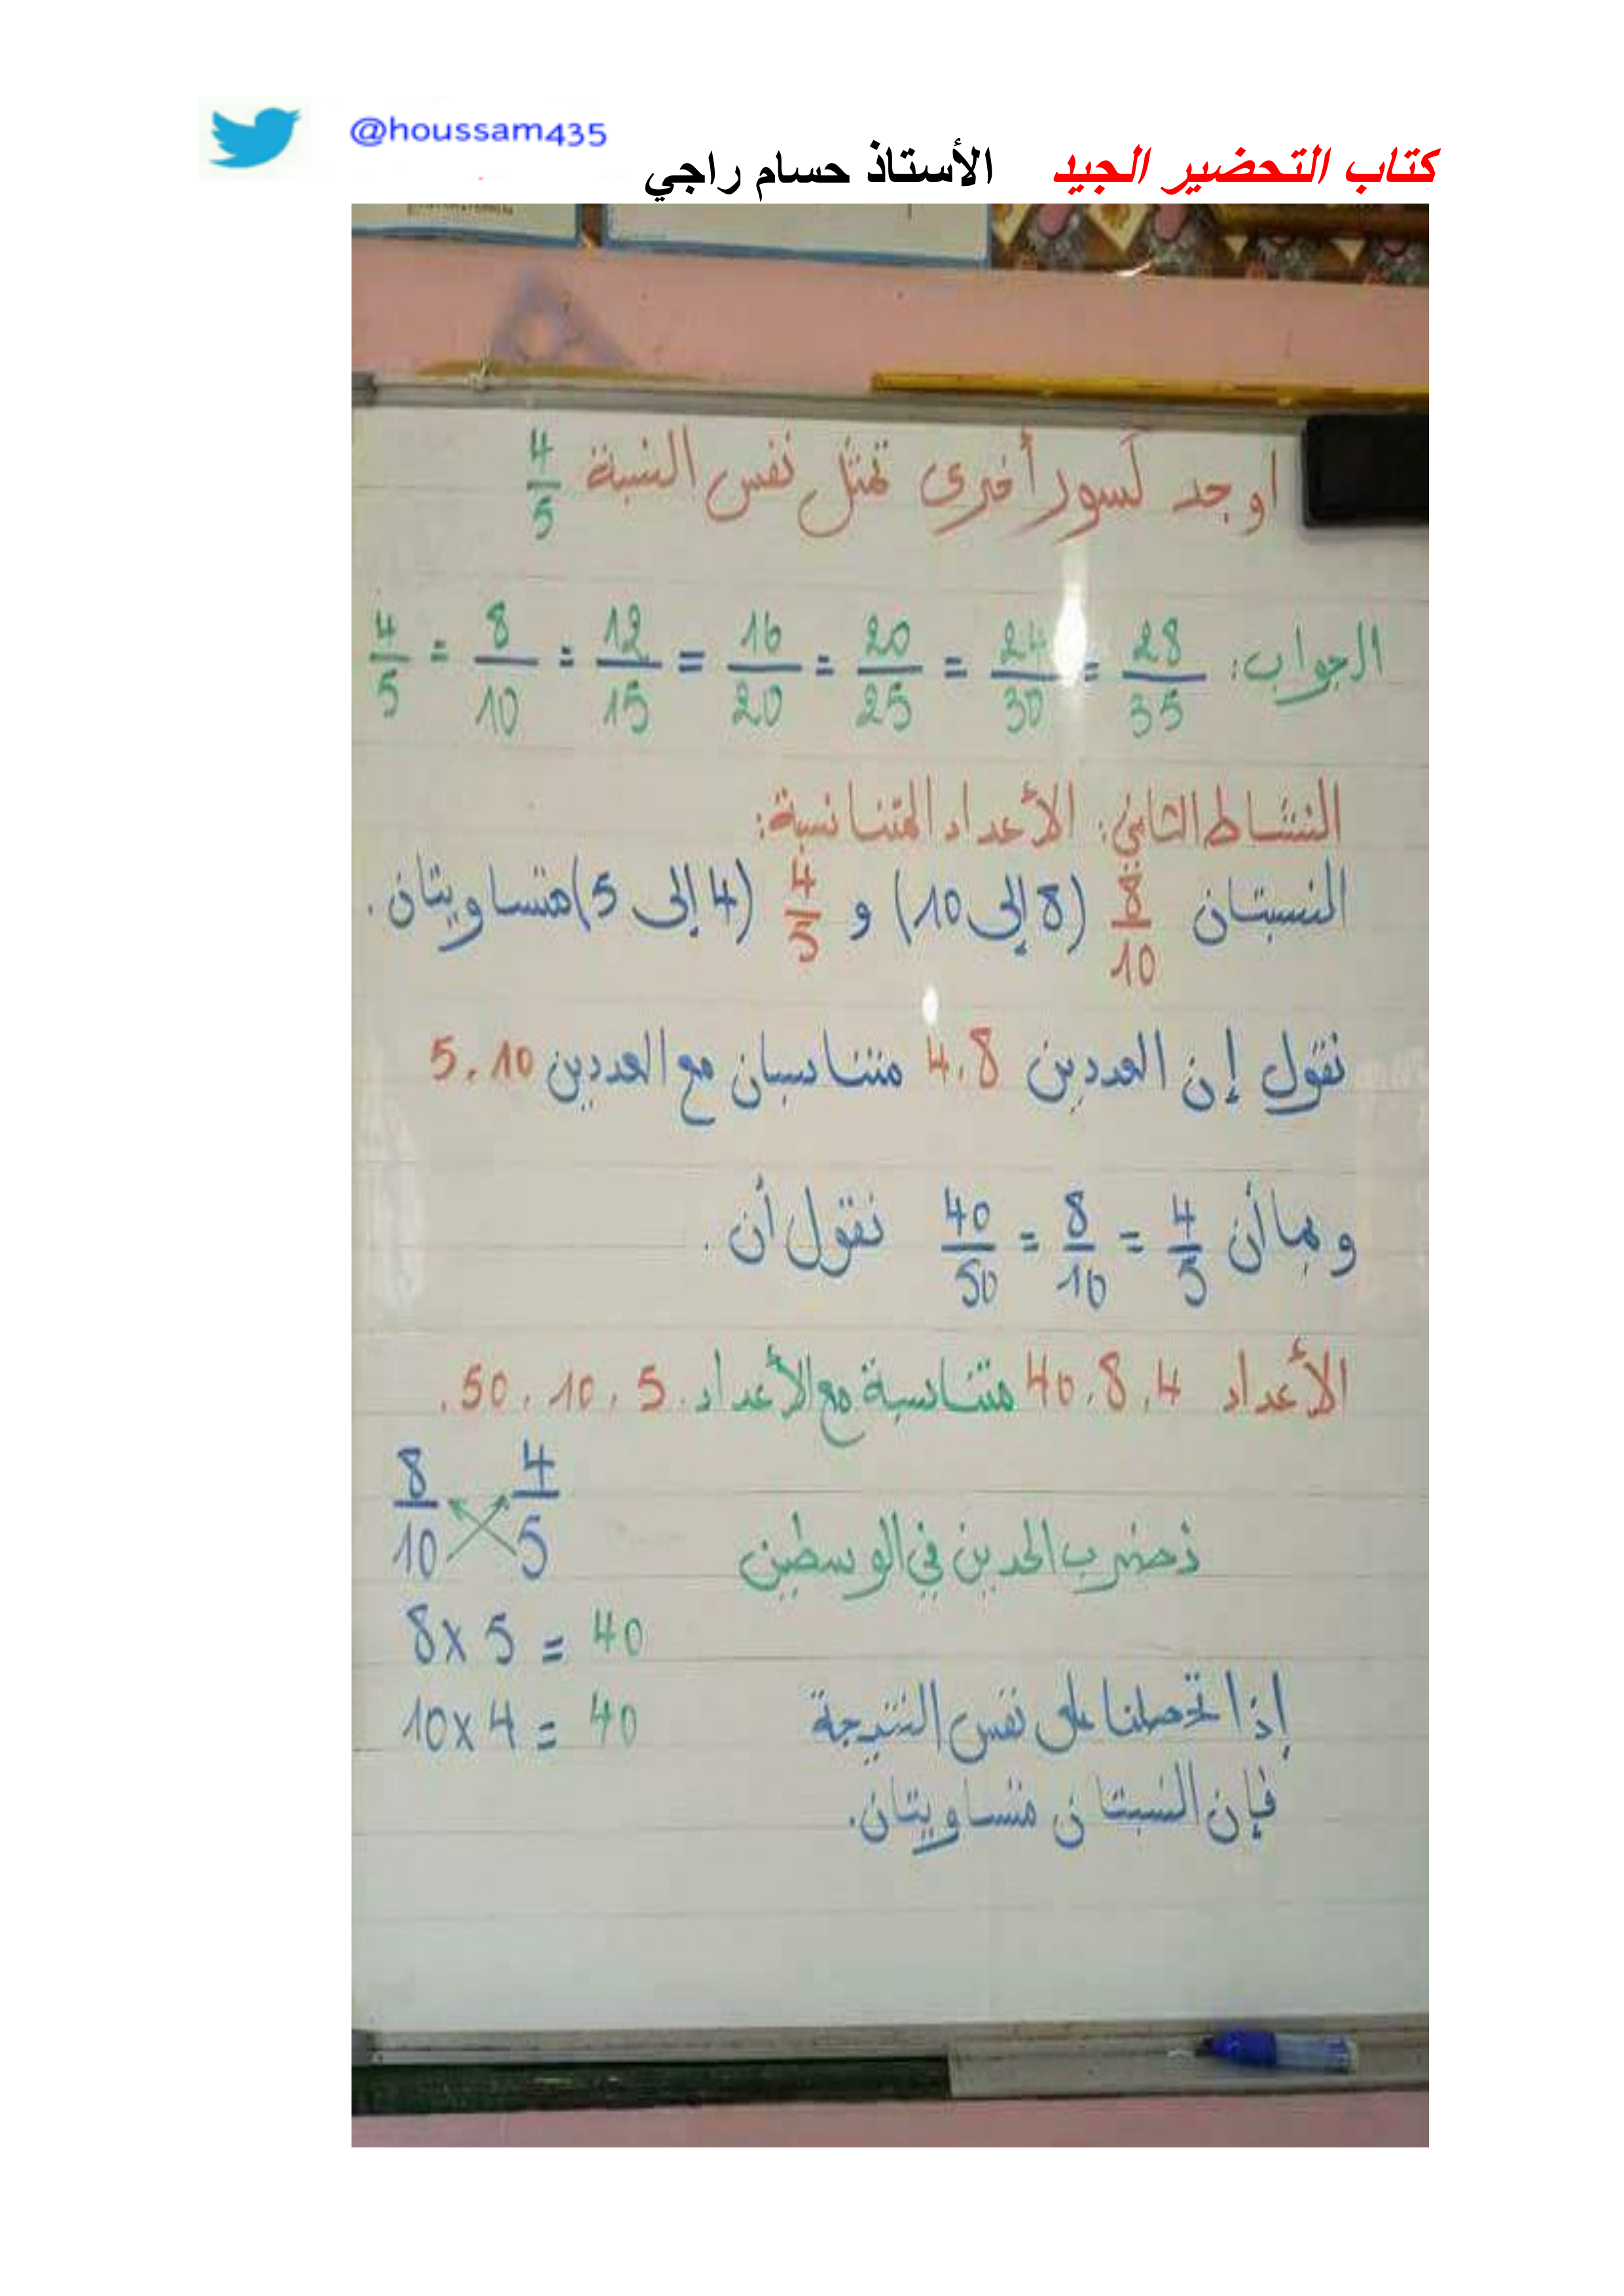 @houssam435
كتاب التحضير الجيد الأستاذ حسام راجي
اوجد كسور أخرى تمثل نفس النسبة 4/5
الجواب: 4/5 = 8/10 = 12/15 = 16/20 = 20/25 = 24/30 = 28/35
النشاط الثاني: الأعداد المتناسبة:
النسبتان 8/10 (8 إلى 10) و 4/5 (4 إلى 5) متساويتان.
نقول إن العددين 4.8 متناسبان مع العددين 5.10
وبما أن 4/5 = 8/10 = 40/50 نقول أن.
الأعداد 40.8.4 متناسبة مع الأعداد 50.10.5.
8/10 4/5
نضرب الحدين في الوسطين
8 x 5 = 40
إذا تحصلنا على نفس النتيجة
10 x 4 = 40
فإن النسبتان متساويتان.